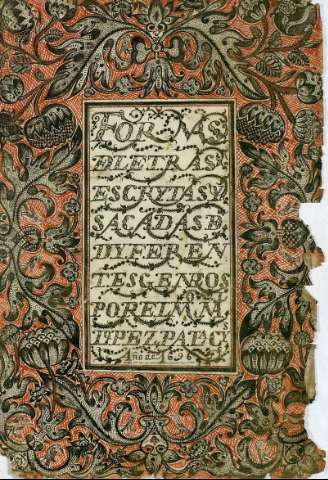 FORMAS
DLETRAS
ESCRYTASY
SACADAS D
DIFEREN
TES GENROS
POR EL M M
Año de 1696